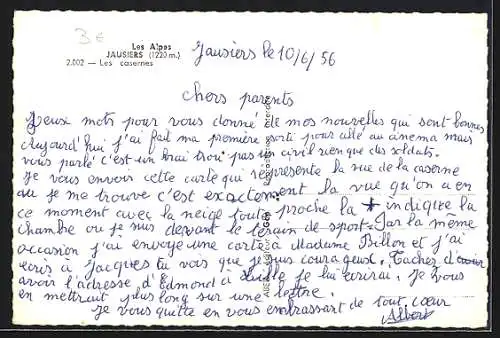 3€
Les Alpes
JAUSIERS (1220 m.)
2.002 — Les casernes
Jausiers le 10/6/56
chers parents
Deux mots pour vous donné de mes nouvelles qui sont bonnes
Aujourd'hui j'ai fait ma première sorti pour allé au cinema mais
vous parlé c'est un vrai trou pas un civil rien que des soldats.
Je vous envoir cette carte qui représente la rue de la caserne
ou je me trouve c'est exactement la vue qu'on a en
ce moment avec la neige toute proche la + indique la
chambre ou je suis devant le terain de sport. Par la même
occasion j'ai envoyé une carte à Madame Billon et j'ai
ecris à Jacques tu vois que je suis courageux. Tachez d'
avoir l'adresse d'Edmond à je lui ecrirai. Je vous
en mettrait plus long sur une lettre.
Je vous quitte en vous embrassant de tout cœur
Albert